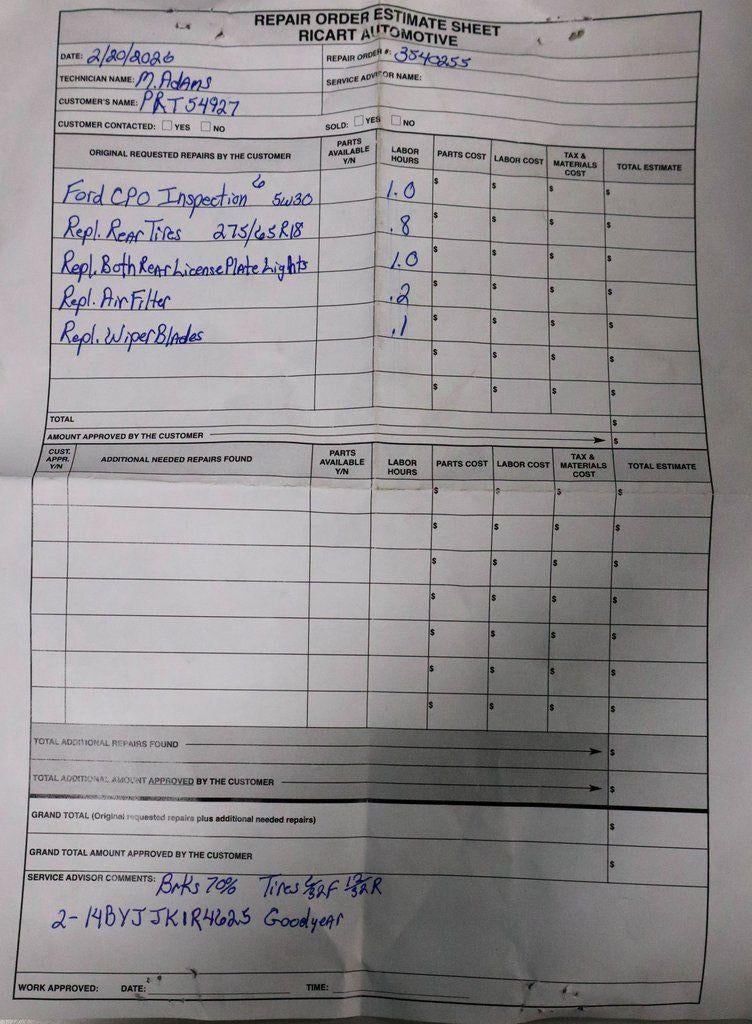 REPAIR ORDER ESTIMATE SHEET
RICART AUTOMOTIVE
DATE: 2/20/2026 REPAIR ORDER #: 3540255
TECHNICIAN NAME: M. Adams SERVICE ADVISOR NAME:
CUSTOMER'S NAME: PRT54927
CUSTOMER CONTACTED: YES NO SOLD: YES NO
ORIGINAL REQUESTED REPAIRS BY THE CUSTOMER PARTS AVAILABLE Y/N LABOR HOURS PARTS COST LABOR COST TAX & MATERIALS COST TOTAL ESTIMATE
Ford CPO Inspection 6 5W30 1.0 $ $ $ $
Repl. Rear Tires 275/65R18 .8 $ $ $ $
Repl. Both Rear License Plate Lights 1.0 $ $ $ $
Repl. Air Filter .2 $ $ $ $
Repl. Wiper Blades .1 $ $ $ $
$ $ $ $
$ $ $ $
TOTAL $
AMOUNT APPROVED BY THE CUSTOMER $
CUST. APPR. Y/N ADDITIONAL NEEDED REPAIRS FOUND PARTS AVAILABLE Y/N LABOR HOURS PARTS COST LABOR COST TAX & MATERIALS COST TOTAL ESTIMATE
$ $ $ $
$ $ $ $
$ $ $ $
$ $ $ $
$ $ $ $
$ $ $ $
$ $ $ $
TOTAL ADDITIONAL REPAIRS FOUND $
TOTAL ADDITIONAL AMOUNT APPROVED BY THE CUSTOMER $
GRAND TOTAL (Original requested repairs plus additional needed repairs) $
GRAND TOTAL AMOUNT APPROVED BY THE CUSTOMER $
SERVICE ADVISOR COMMENTS: Brks 70% Tires F 12/32R
2-14BYJJK1R4625 Goodyear
WORK APPROVED: DATE: TIME: